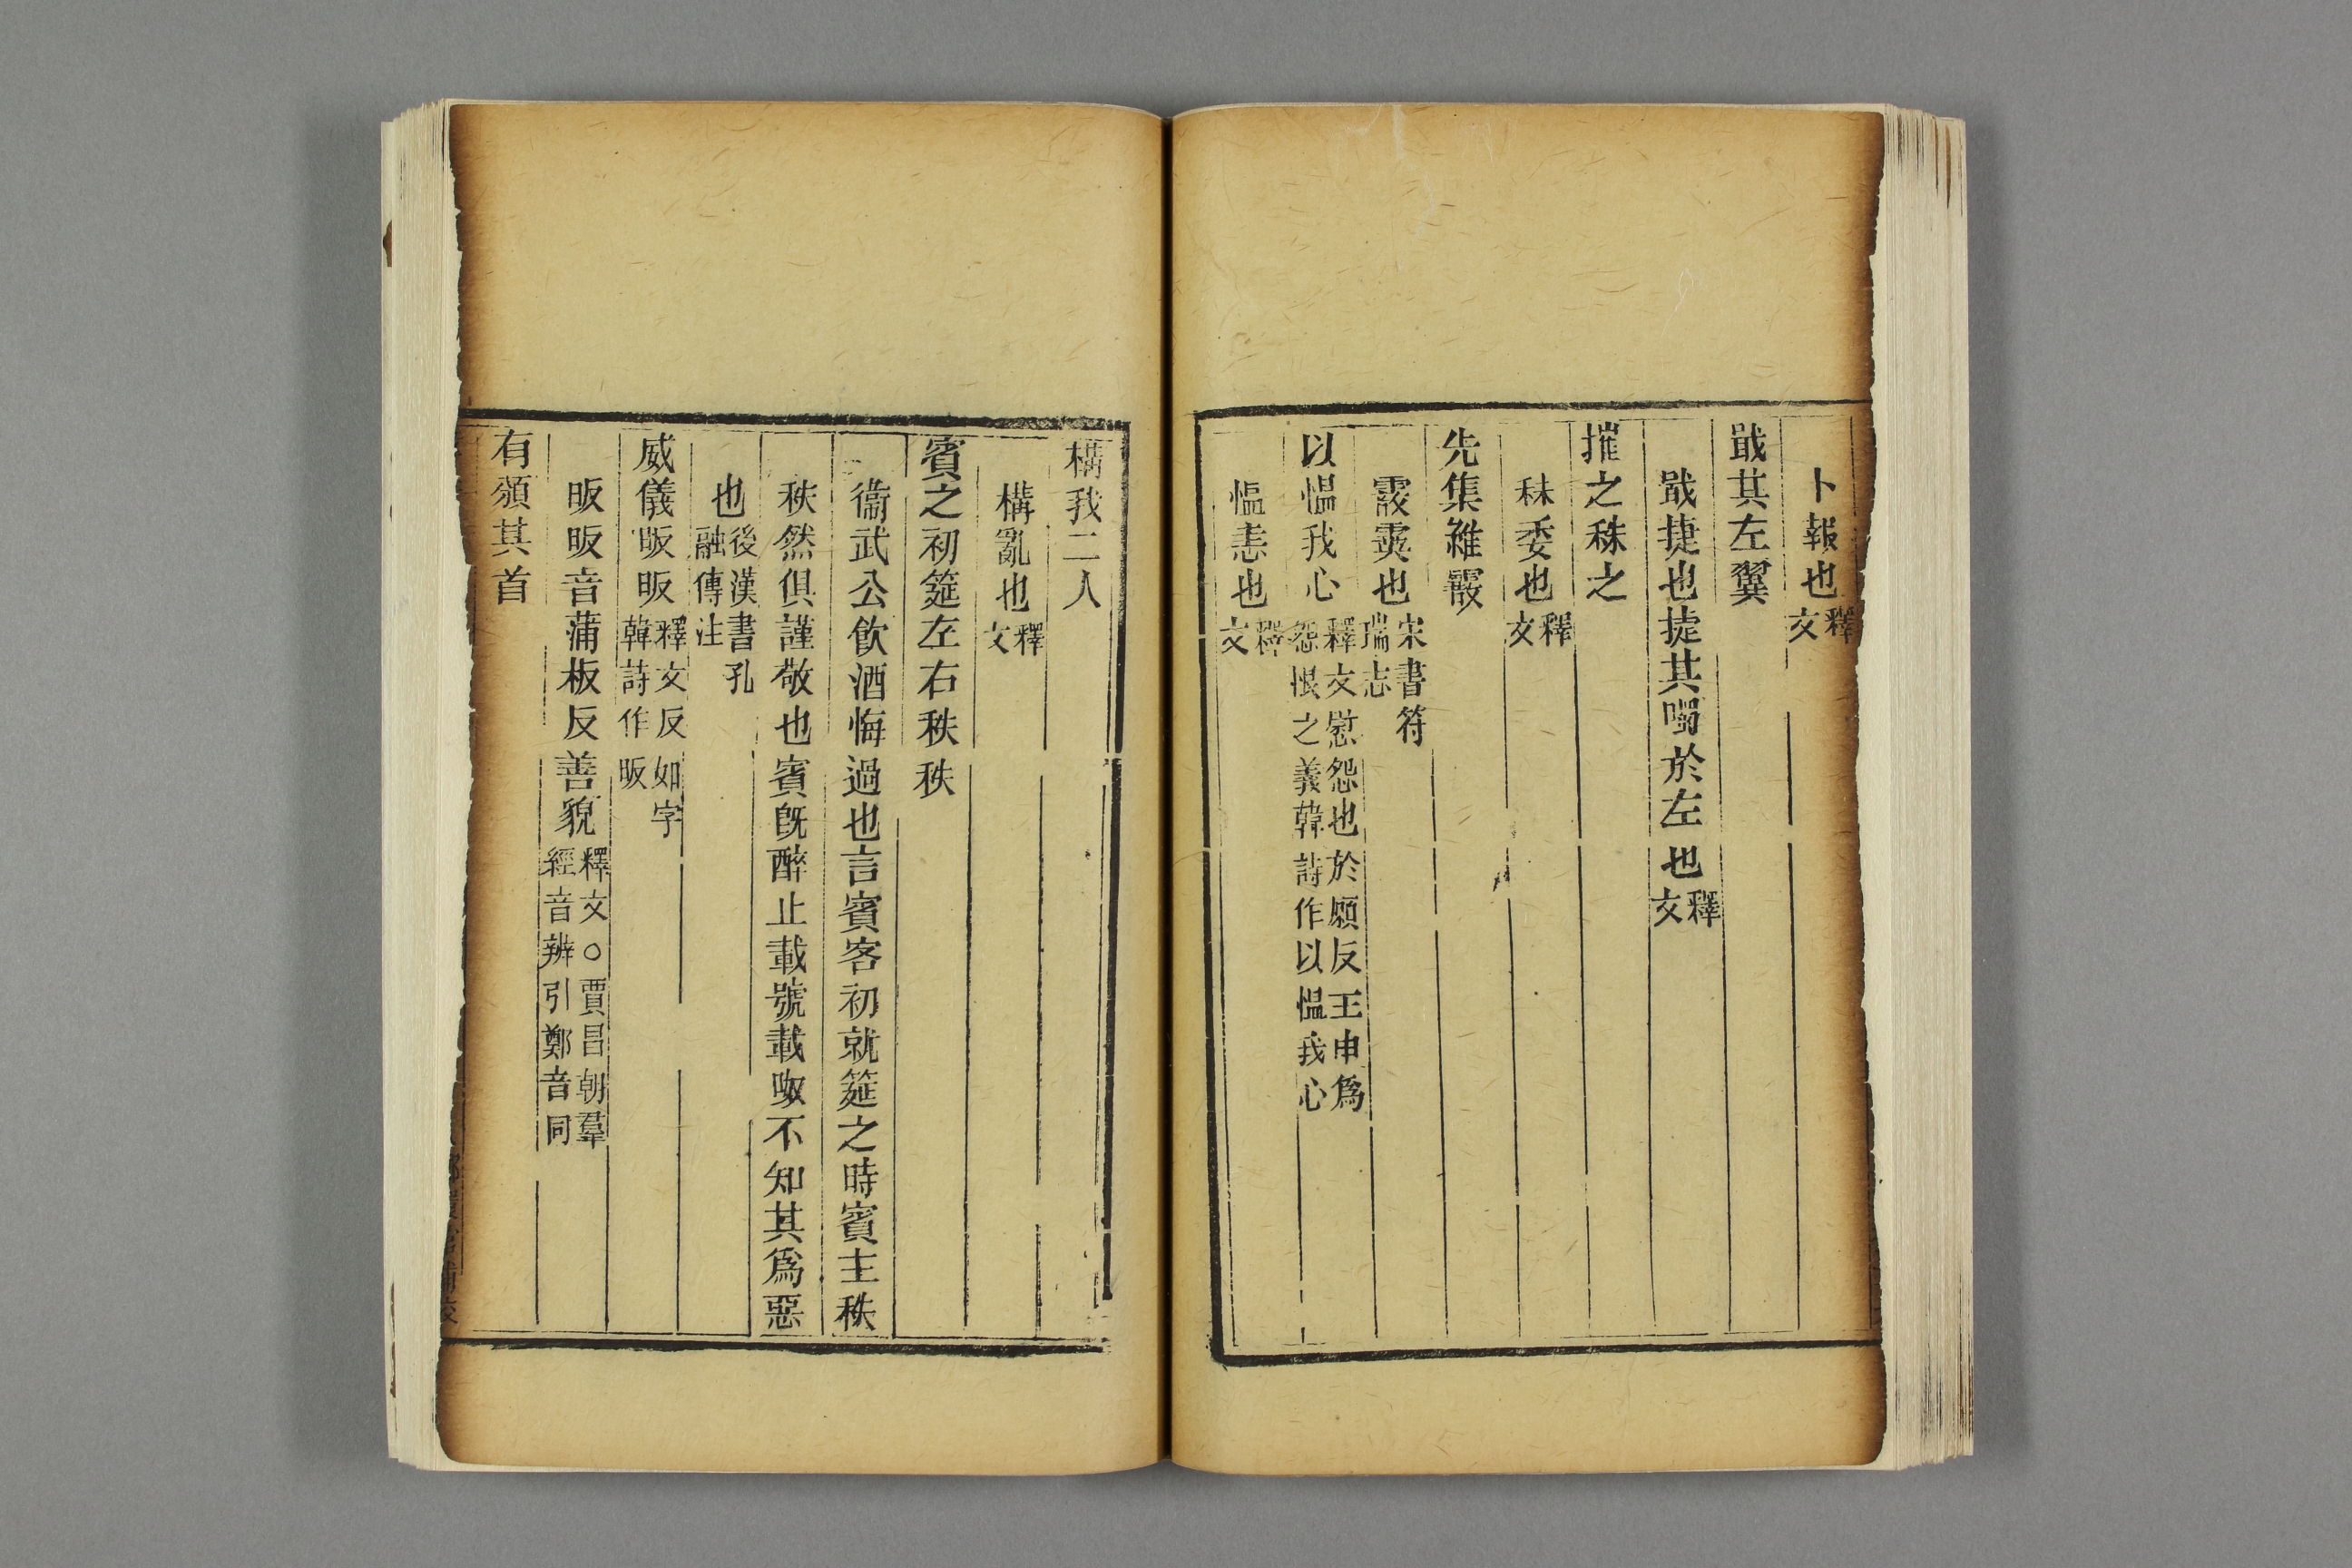 卜報也釋文
戢其左翼
戢捷也捷其噣於左也釋文
摧之秣之
秣委也釋文
先集維霰
霰霙也宋書符瑞志
以愠我心釋文慰怨也於願反王申爲怨恨之義韓詩作以愠我心
愠恚也釋文
構我二人
構亂也釋文
賓之初筵左右秩秩
衞武公飲酒悔過也言賓客初就筵之時賓主秩
秩然俱謹敬也賓旣醉止載號載呶不知其爲惡
也後漢書孔融傳注
威儀昄昄釋文反如字韓詩作昄
昄昄音蒲板反善貌釋文○賈昌朝羣經音辨引鄭音同
有頒其首